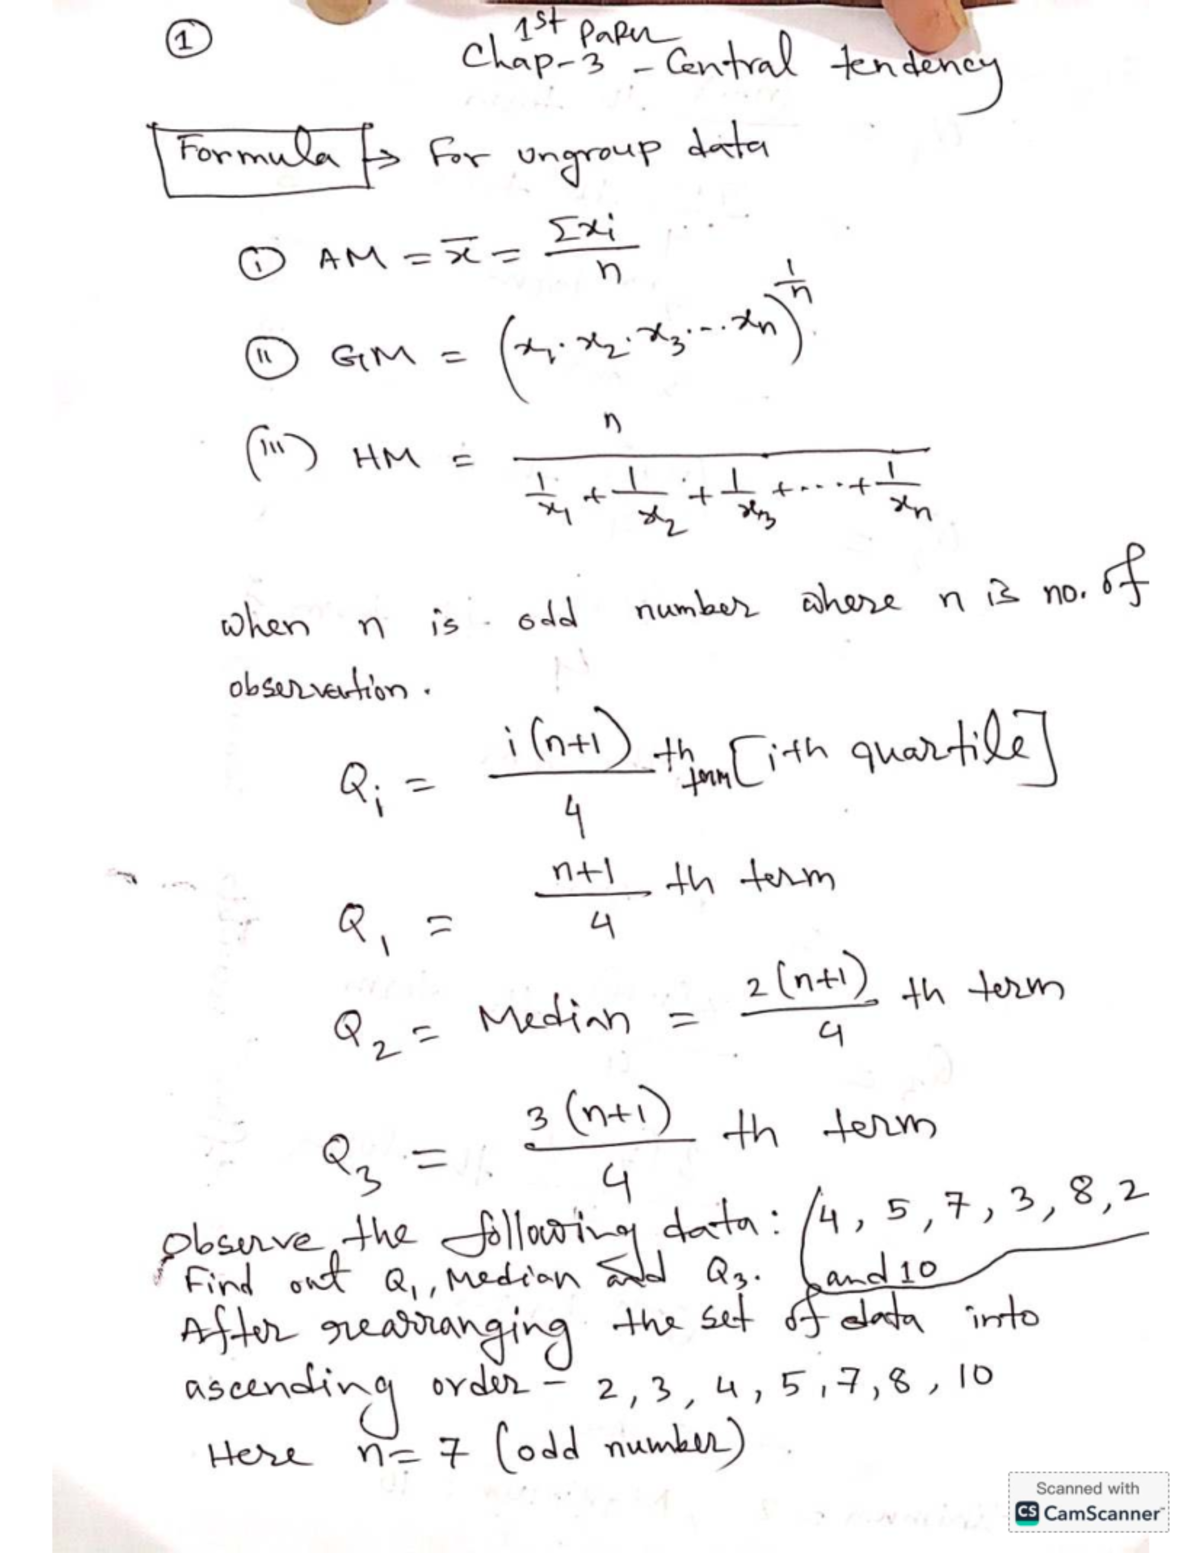 ①
1st Paper
Chap-3 - Central tendency
Formula → For ungroup data
(i) AM = x̄ = Σxi / n
(ii) GM = (x₁·x₂·x₃·...xₙ)^(1/n)
(iii) HM = n / (1/x₁ + 1/x₂ + 1/x₃ + ... + 1/xₙ)
when n is odd number where n is no. of
observation.
Qi = i(n+1)/4 th term [ith quartile]
Q₁ = n+1/4 th term
Q₂ = Median = 2(n+1)/4 th term
Q₃ = 3(n+1)/4 th term
Observe the following data: 4, 5, 7, 3, 8, 2
and 10
Find out Q₁, Median and Q₃.
After rearranging the set of data into
ascending order - 2, 3, 4, 5, 7, 8, 10
Here n = 7 (odd number)
Scanned with
CS CamScanner